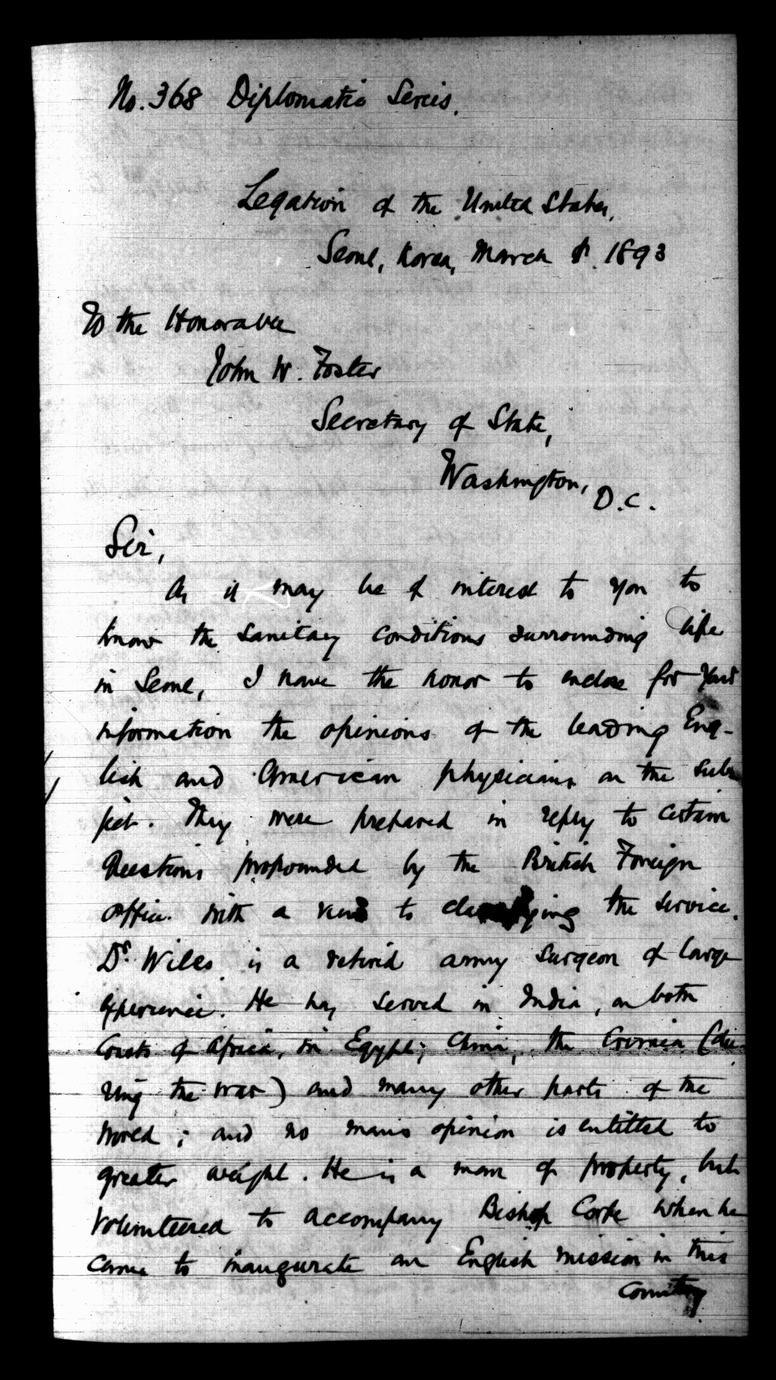 No. 368 Diplomatic Series.
Legation of the United States,
Seoul, Korea, March 1893
To the Honorable
John W. Foster
Secretary of State,
Washington, D.C.
Sir,
As it may be of interest to you to
know the sanitary conditions surrounding life
in Seoul, I have the honor to enclose for your
information the opinions of the leading Eng-
lish and American physicians on the sub-
ject. They were prepared in reply to certain
Questions propounded by the British Foreign
Office with a view to classifying the service.
Dr. Wiles is a retired army surgeon of large
experience. He has served in India, on both
Coasts of Africa, in Egypt, China, the Crimea (du-
ring the war) and many other parts of the
World; and no man's opinion is entitled to
greater weight. He is a man of property, but
volunteered to accompany Bishop Corfe when he
came to inaugurate an English mission in this
Country